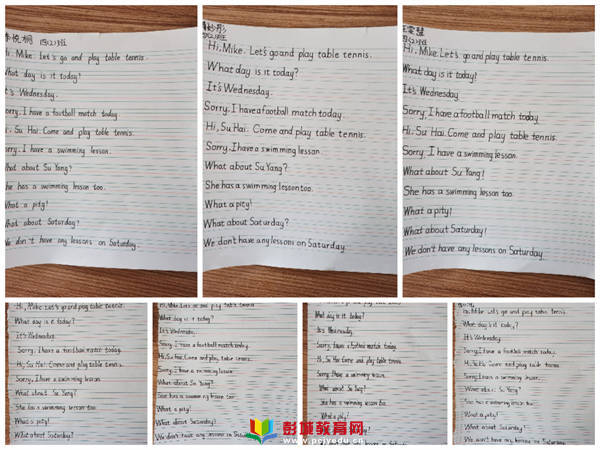 四(2)班
Hi, Mike. Let's go and play table tennis.
What day is it today?
It's Wednesday.
Sorry, I have a football match today.
Hi, Su Hai. Come and play table tennis.
Sorry, I have a swimming lesson.
What about Su Yang?
She has a swimming lesson too.
What a pity!
What about Saturday?
We don't have any lessons on Saturday.
Hi, Mike. Let's go and play table tennis.
What day is it today?
It's Wednesday.
Sorry, I have a football match today.
Hi, Su Hai. Come and play table tennis.
Sorry, I have a swimming lesson.
What about Su Yang?
She has a swimming lesson too.
What a pity!
What about Saturday?
We don't have any lessons on Saturday.
四(2)班
Hi, Mike. Let's go and play table tennis.
What day is it today!
It's Wednesday.
Sorry, I have a football match today.
Hi, Su Hai. Come and play table tennis.
Sorry, I have a swimming lesson.
What about Su Yang!
She has a swimming lesson too.
What a pity!
What about Saturday!
We don't have any lessons on Saturday.
Hi, Mike. Let's go and play table tennis.
What day is it today?
It's Wednesday.
Sorry, I have a football match today.
Hi, Su Hai. Come and play table tennis.
Sorry, I have a swimming lesson.
What about Su Yang?
She has a swimming lesson too.
What a pity!
What about Saturday?
Hi, Mike. Let's go and play table tennis.
What day is it today?
It's Wednesday.
Sorry, I have a football match today.
Hi, Su Hai. Come and play table tennis.
Sorry, I have a swimming lesson.
What about Su Yang?
She has a swimming lesson too.
What a pity!
What about Saturday?
We don't have any lessons on Saturday.
and play table tennis.
What day is it today?
It's Wednesday.
Sorry, I have a football match today.
Hi, Su Hai. Come and play table tennis.
Sorry, I have a swimming lesson.
What about Su Yang?
She has a swimming lesson too.
What a pity!
Hi, Mike. Let's go and play table tennis.
What day is it today?
It's Wednesday.
Sorry, I have a football match today.
Come and play table tennis.
Sorry, I have a swimming lesson.
What about Su Yang?
She has a swimming lesson too.
What a pity!
What about Saturday?
We don't have any lessons on Saturday.
彭城教育网
www.pcjyedu.cn